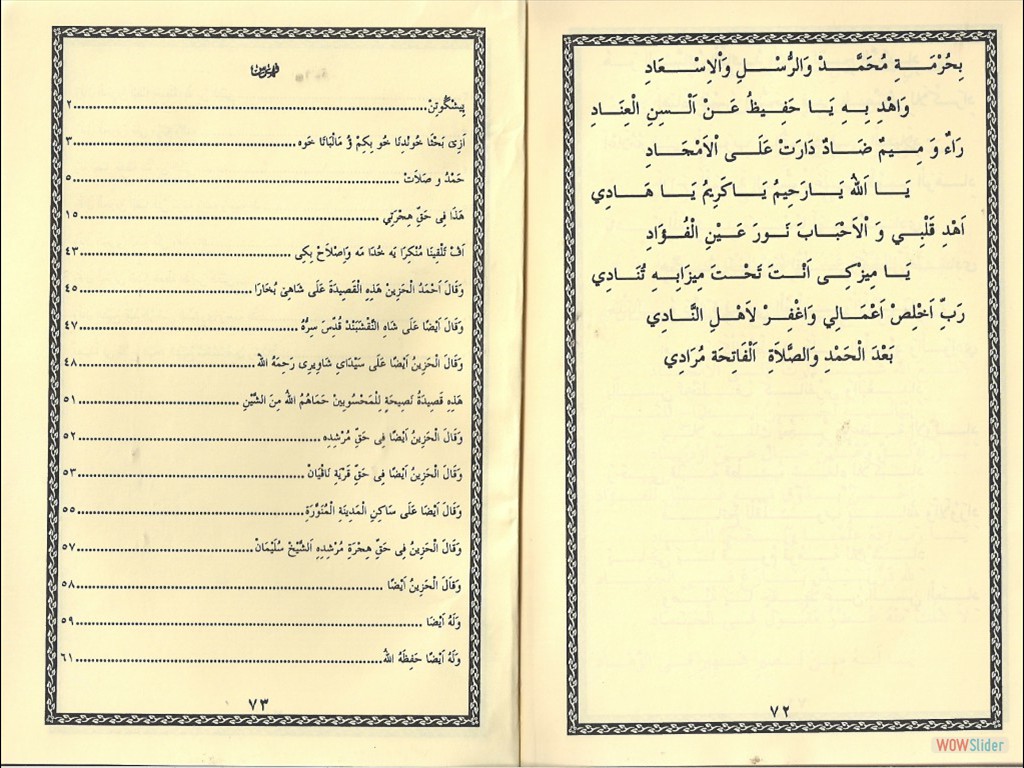 بِحُرْمَةِ مُحَمَّدْ وَالرُّسْلِ وَاْلاِسْعَادِ
وَاهْدِ بِهِ يَا حَفِيظُ عَنْ اَلْسِنِ الْعَنَادِ
رَاءٌ وَ مِيمٌ ضَادٌ دَارَتْ عَلَى اْلاَمْجَادِ
يَا اَللهُ يَارَحِيمُ يَاكَرِيمُ يَا هَادِي
اَهْدِ قَلْبِي وَ اْلاَحْبَابَ نَورَ عَيْنِ الْفُؤَادِ
يَا مِيزْكِى اَنْتَ تَحْتَ مِيزَابِهِ تُنَادِي
رَبِّ اَخْلِصْ اَعْمَالِي وَاغْفِرْ لاَهْلِ النَّادِي
بَعْدَ الْحَمْدِ وَالصَّلاَةِ اَلْفَاتِحَة مُرَادِي
٧٢
فهرست
پِيشْگُوتِنْ ٢
اَزِى بَحْثَا خُولْدِنَا خُو بِكِمْ وُ مَالْبَاتَا خَوه ٣
حَمْدُ و صَلاَتْ ٥
هَذَا فِى حَقِّ هِجْرَتِي ١٥
اَڤْ تَلْقِينَا مُنْكِرَا يَه خُدَا مَه وَاِصْلاَحْ بِكِى ٤٣
وَقَالَ اَحْمَدُ الْحَزِينْ هَذِهِ الْقَصِيدَةَ عَلَى شَاهِىْ بُخَارَا ٤٥
وَقَالَ اَيْضًا عَلَى شَاهِ النَّقْشَبَنْدْ قُدِّسَ سِرُّهُ ٤٧
وَقَالَ الْحَزِينُ اَيْضًا عَلَى سَيْدَاىِ شَاوِيرِى رَحِمَهُ اللهُ ٤٨
هَذِهِ قَصِيدَةُ نَصِيحَةٍ لِلْمَحْسُوبِينْ حَمَاهُمُ اللهُ مِنَ الشَّيْنِ ٥١
وَقَالَ الْحَزِينُ اَيْضًا فِى حَقِّ مُرْشِدِهِ ٥٢
وَقَالَ الْحَزِينُ اَيْضًا فِى حَقِّ قَرْيَةِ نَاقْيَانْ ٥٣
وَقَالَ اَيْضًا عَلَى سَاكِنِ الْمَدِينَةِ الْمُنَوَّرَةِ ٥٥
وَقَالَ الْحَزِينُ فِى حَقِّ هِجْرَةِ مُرْشِدِهِ اَلشَّيْخْ سُلَيْمَانْ ٥٧
وَقَالَ الْحَزِينُ اَيْضًا ٥٨
وَلَهُ اَيْضًا ٥٩
وَلَهُ اَيْضًا حَفِظَهُ اللهُ ٦١
٧٣
WOWSlider